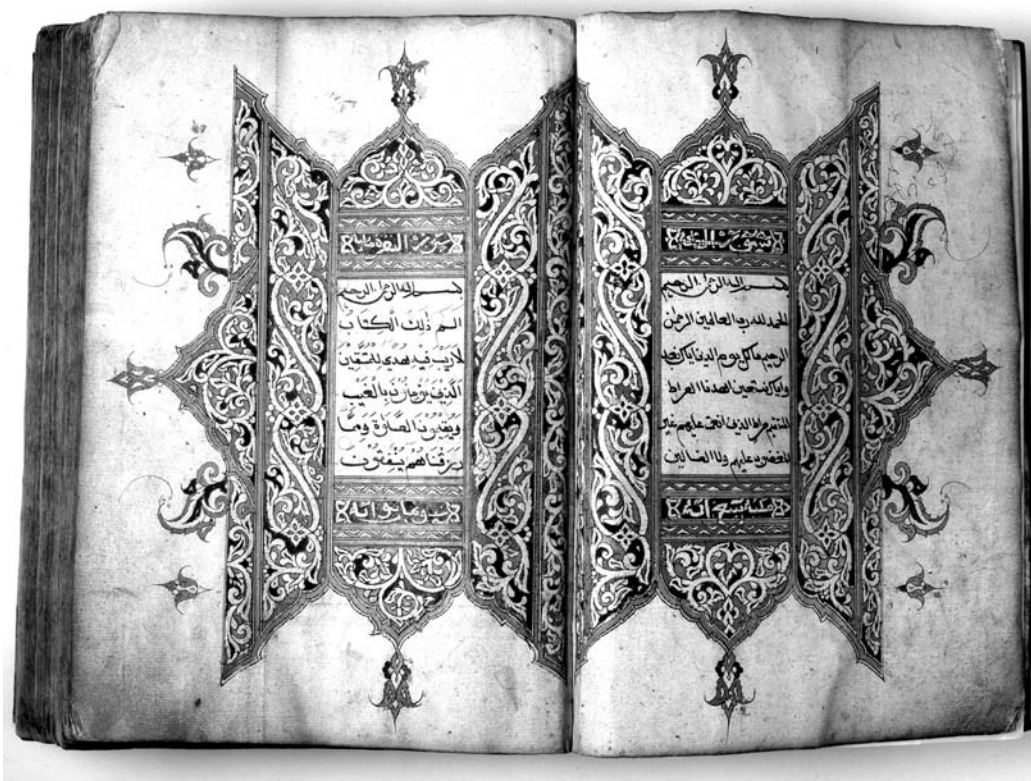 سورة الفاتحة
بسم الله الرحمن الرحيم
الحمد لله رب العالمين الرحمن
الرحيم ملك يوم الدين اياك نعبد
واياك نستعين اهدنا الصراط
المستقيم صراط الذين انعمت عليهم غير
المغضوب عليهم ولا الضالين
سورة البقرة
بسم الله الرحمن الرحيم
الم ذٰلِكَ الْكتَاب
لَارَيْبَ فِيهِ هُدًي لِلْمُتَّقِينَ
الَّذِينَ يُؤْمِنُونَ بِالْغَيْبِ
وَيُقِيمُونَ الصَّلَاةَ وَمِمَّا
رَزَقْنَاهُمْ يُنْفِقُونَ